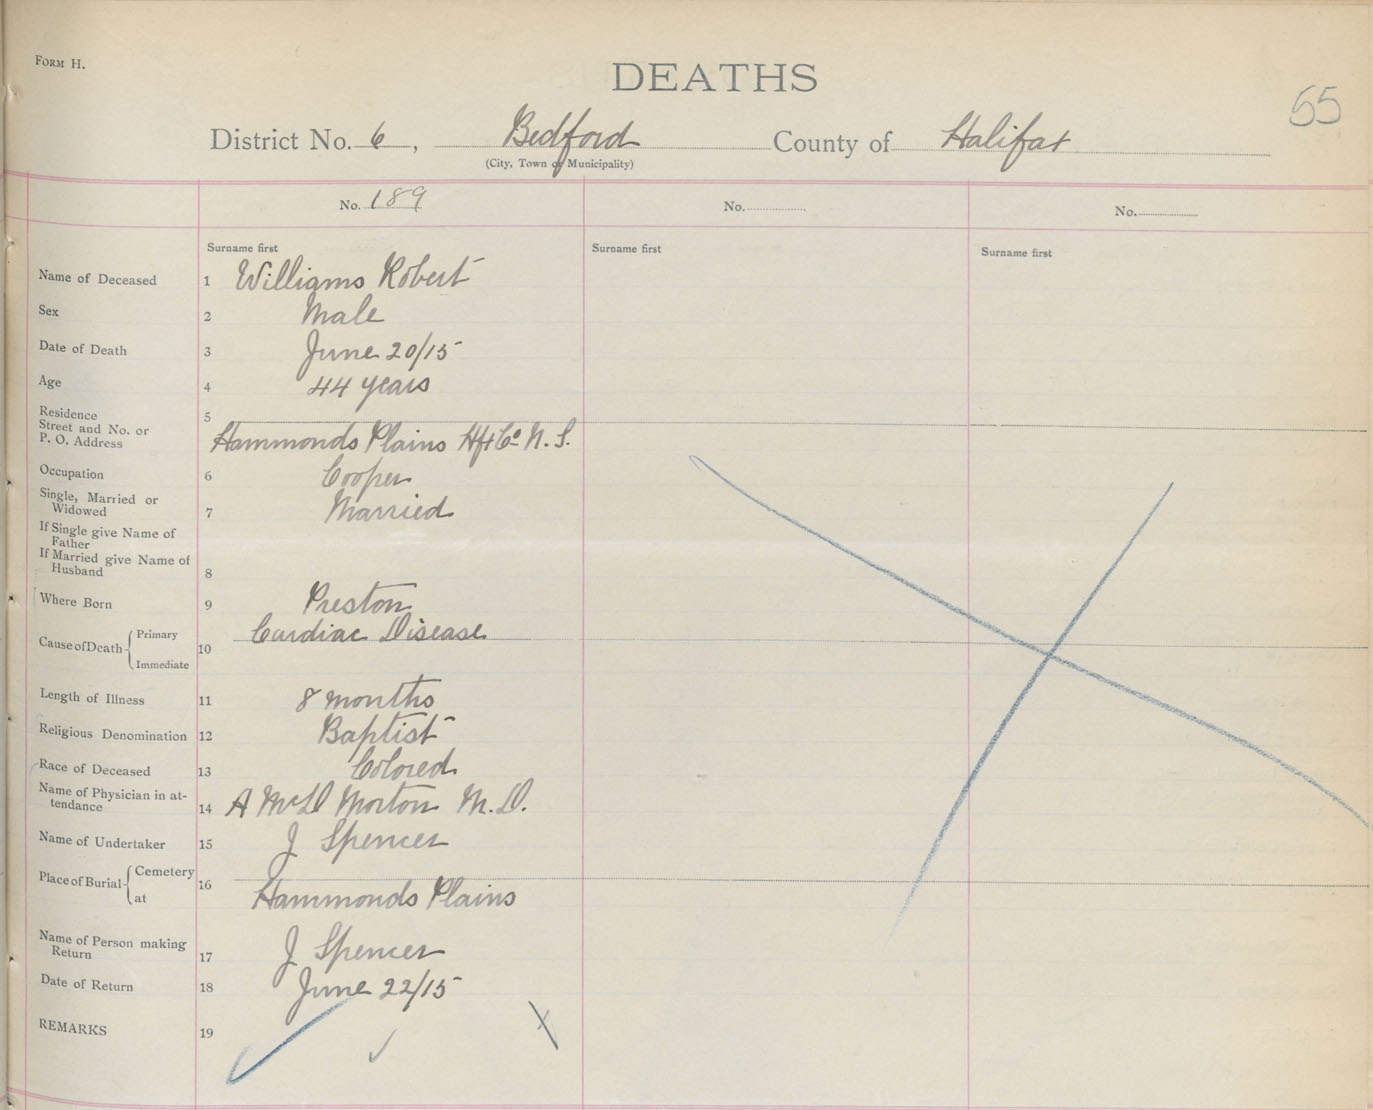 FORM H.
DEATHS
55
District No. 6, Bedford County of Halifax
(City, Town or Municipality)
No. 189 No. No.
Surname first Surname first Surname first
Name of Deceased 1 Williams Robert
Sex 2 Male
Date of Death 3 June 20/15
Age 4 44 years
Residence 5
Street and No. or
P. O. Address Hammonds Plains Hfx Co N. S.
Occupation 6 Cooper
Single, Married or
Widowed 7 Married
If Single give Name of
Father
If Married give Name of
Husband 8
Where Born 9 Preston
Cause of Death Primary 10 Cardiac Disease
Immediate
Length of Illness 11 8 months
Religious Denomination 12 Baptist
Race of Deceased 13 Colored
Name of Physician in at-
tendance 14 A McD Morton M.D.
Name of Undertaker 15 J Spencer
Place of Burial Cemetery 16
at Hammonds Plains
Name of Person making
Return 17 J Spencer
Date of Return 18 June 22/15
REMARKS 19